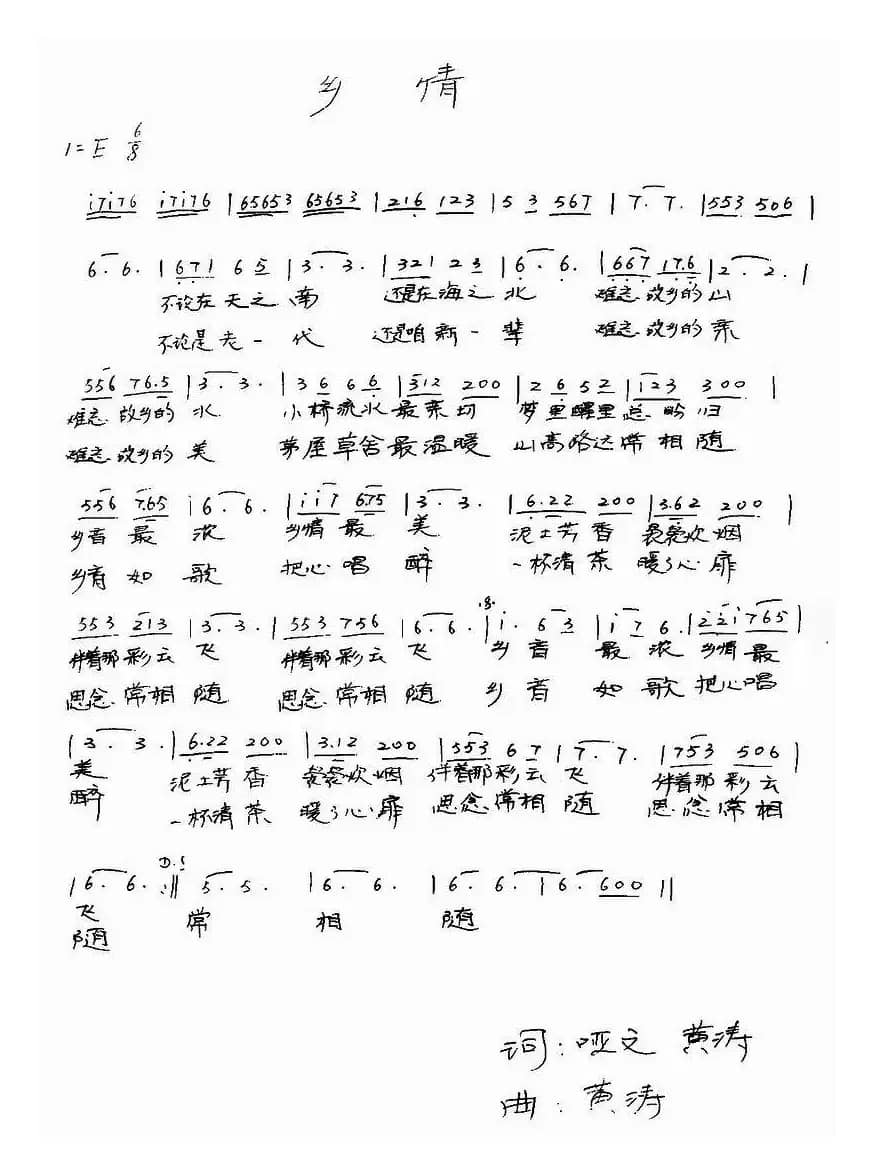 乡 情
1=E 6/8
i7i76 i7i76 | 65653 65653 | 216 123 | 5 3 567 | 7. 7. | 553 506 |
6. 6. | 671 6 5 | 3. 3. | 321 2 3 | 6. 6. | 667 17.6 | 2. 2. |
不论在天之南 还是在海之北 难忘故乡的山
不论是老一代 还是咱新一辈 难忘故乡的亲
556 76.5 | 3. 3. | 3 6 6 6 | 312 200 | 2 6 5 2 | 123 300 |
难忘故乡的水 小桥流水最亲切 梦里醒里总盼归
难忘故乡的美 茅屋草舍最温暖 山高路远常相随
556 7.65 | 6. 6. | ii7 675 | 3. 3. | 6.22 200 | 3.62 200 |
乡音最浓 乡情最美 泥土芳香 袅袅炊烟
乡音如歌 把心唱醉 一杯清茶 暖了心扉
553 213 | 3. 3. | 553 756 | 6. 6. | i. 6 3 | i 7 6. | 22i 765 |
伴着那彩云飞 伴着那彩云飞 乡音最浓 乡情最
思念常相随 思念常相随 乡音如歌 把心唱
| 3. 3. | 6.22 200 | 3.12 200 | 553 6 7 | 7. 7. | 753 506 |
美 泥土芳香 袅袅炊烟 伴着那彩云飞 伴着那彩云
醉 一杯清茶 暖了心扉 思念常相随 思念常相
D.S
| 6. 6. :|| 5. 5. | 6. 6. | 6. 6. | 6. 600 ||
飞 常 相 随
随
词：哑文 黄涛
曲：黄涛